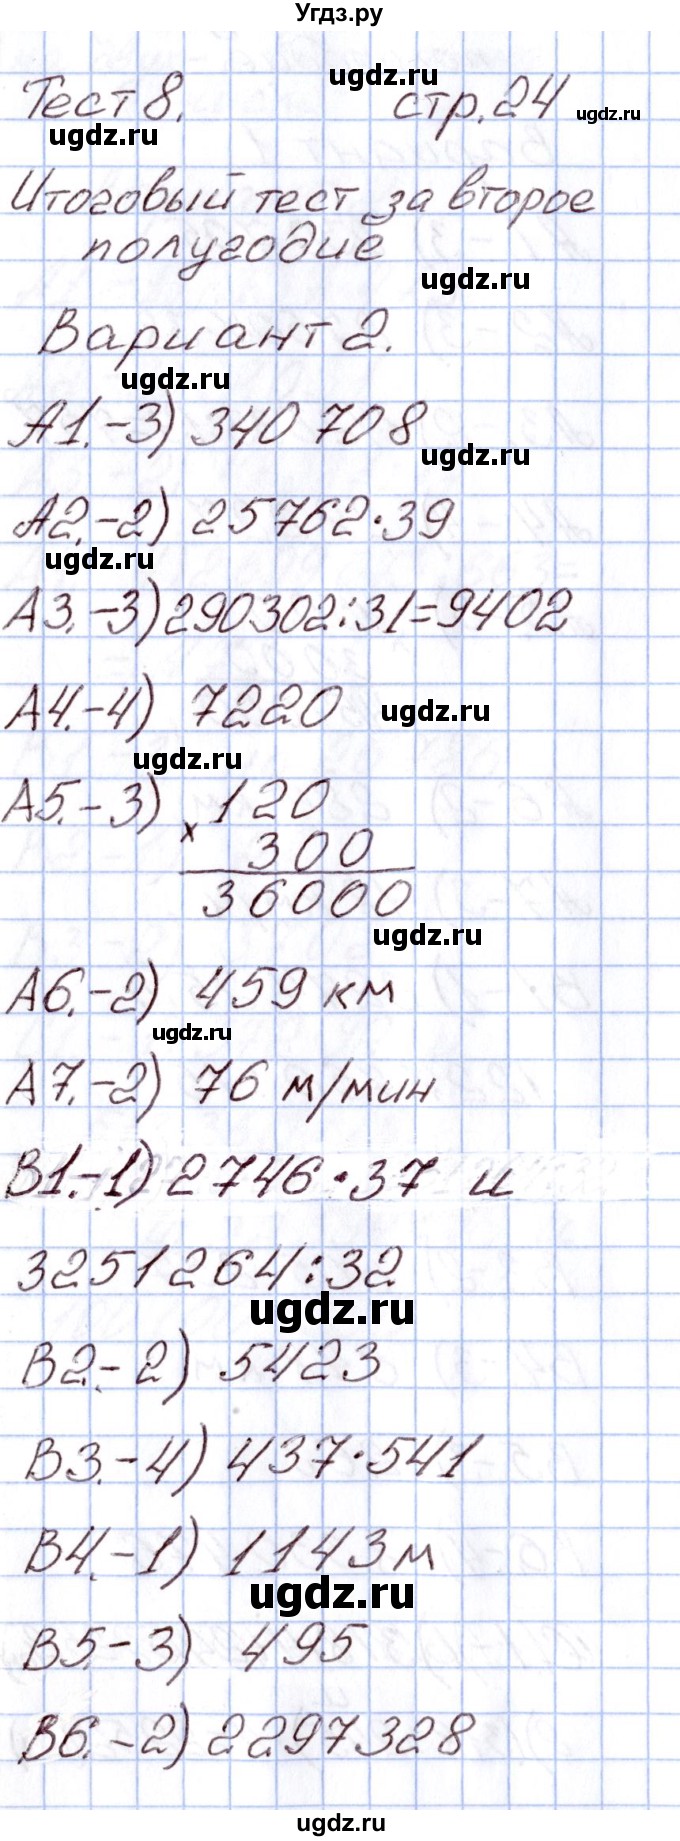 Угдз.ру
ugdz.ru
Тест 8. стр. 24
ugdz.ru
ugdz.ru
Итоговый тест за второе
полугодие
ugdz.ru
Вариант 2.
ugdz.ru
А1.-3) 340 708
ugdz.ru
А2.-2) 25762·39
ugdz.ru
А3.-3) 290302:31=9402
А4.-4) 7220
ugdz.ru
ugdz.ru
А5.-3) 120
× 300
36000
ugdz.ru
А6.-2) 459 км
ugdz.ru
А7.-2) 76 м/мин
В1.-1) 2746·37 и
3251264:32
ugdz.ru
В2.-2) 5423
В3.-4) 437·541
В4.-1) 1143м
ugdz.ru
В5.-3) 495
В6.-2) 2297328
ugdz.ru